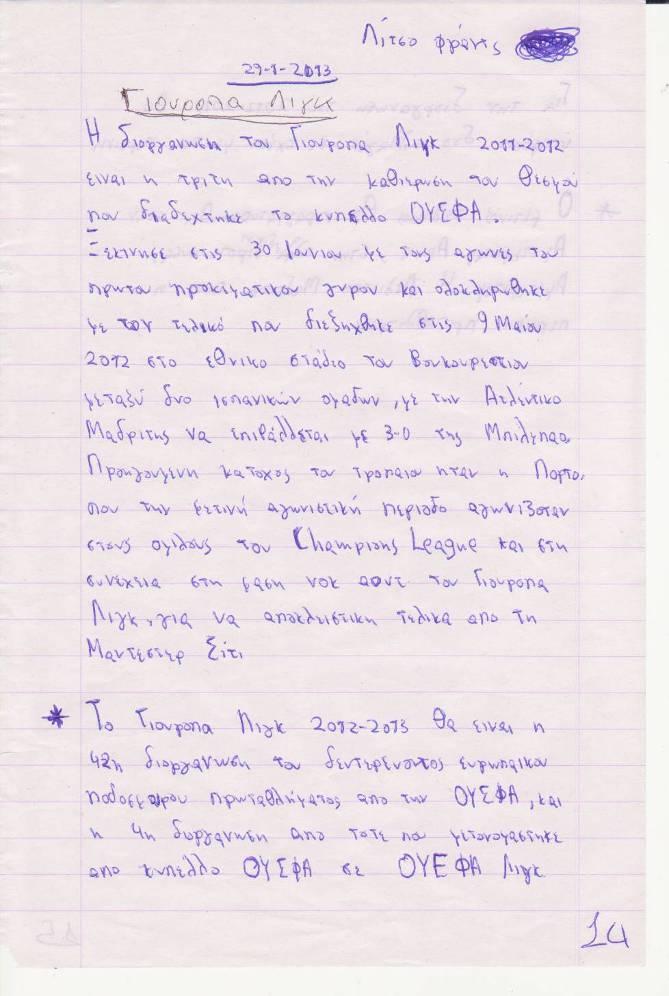 Λίτσο φράντς
29-1-2013
Γιουροπα Λιγκ
Η διοργανωση του Γιουροπα Λιγκ 2011-2012
ειναι η τριτη απο την καθιερωση του θεσμού
που διαδεχτηκε το κυπελλο ΟΥΣΦΑ.
Ξεκινησε στις 30 Ιουνιου με τους αγωνες του
πρωτου προκιματικου γυρου και ολοκληρωθηκε
με τον τελικό που διεξηχθηκε στις 9 Μαιου
2012 στο εθνικο στάδιο του Βουκουρεστιου
μεταξύ δυο ισπανικών ομαδων, με την Ατλέντικο
Μαδριτης να επιβάλλεται με 3-0 της Μπιλμπαο.
Προηγουμενη κατοχος του τροπαιου ηταν η Πορτο,
που την φετινή αγωνιστική περιοδο αγωνιζοταν
στους ομιλους του Champions League και στη
συνεχεια στη φαση νοκ αουτ του Γιουροπα
Λιγκ, για να αποκλειστικη τελικα απο τη
Μαντεστερ Σίτι
* Το Γιουροπα Λιγκ 2012-2013 θα ειναι η
42η διοργανωση του δευτερευοντος ευρωπαικου
ποδοσφαρου πρωταθλήματος απο την ΟΥΣΦΑ, και
η 4η διοργανωση απο τοτε που μετονομαστηκε
απο κυπελλο ΟΥΣΦΑ σε ΟΥΕΦΑ Λιγκ
14